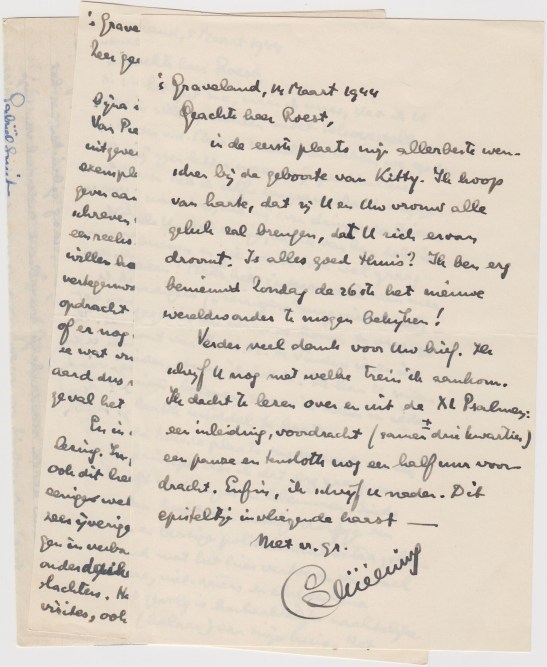 's Graveland, 14 Maart 1944
Geachte heer Roest,
in de eerste plaats mijn allerbeste wen-
schen bij de geboorte van Kitty. Ik hoop
van harte, dat zij U en Uw vrouw alle
geluk zal brengen, dat U zich ervan
droomt. Is alles goed thuis? Ik ben erg
benieuwd Zondag de 26ste het nieuwe
wereldwonder te mogen bekijken!
Verder veel dank voor Uw brief. Ik
schrijf U nog met welke trein ik aankom.
Ik dacht te lezen over en uit de XL Psalmen:
een inleiding, voordracht (samen ± drie kwartier)
een pauze en tenslotte nog een half uur voor-
dracht. Enfin, ik schrijf U nader. Dit
episteltje in vliegende haast —
Met vr. gr.
's Grave
Zeer ge
bijna
Van
uitgeve
exempl
geven aan
schreven
een reeks
willen
vertegenwo
opdracht
of er nog
ze wat
aard dus
geval het
En in
lering. In
ook dit
eenigs wat
zees ijverige
gen in verba
onder
slachters.
visites, ook
Gabriël Smit